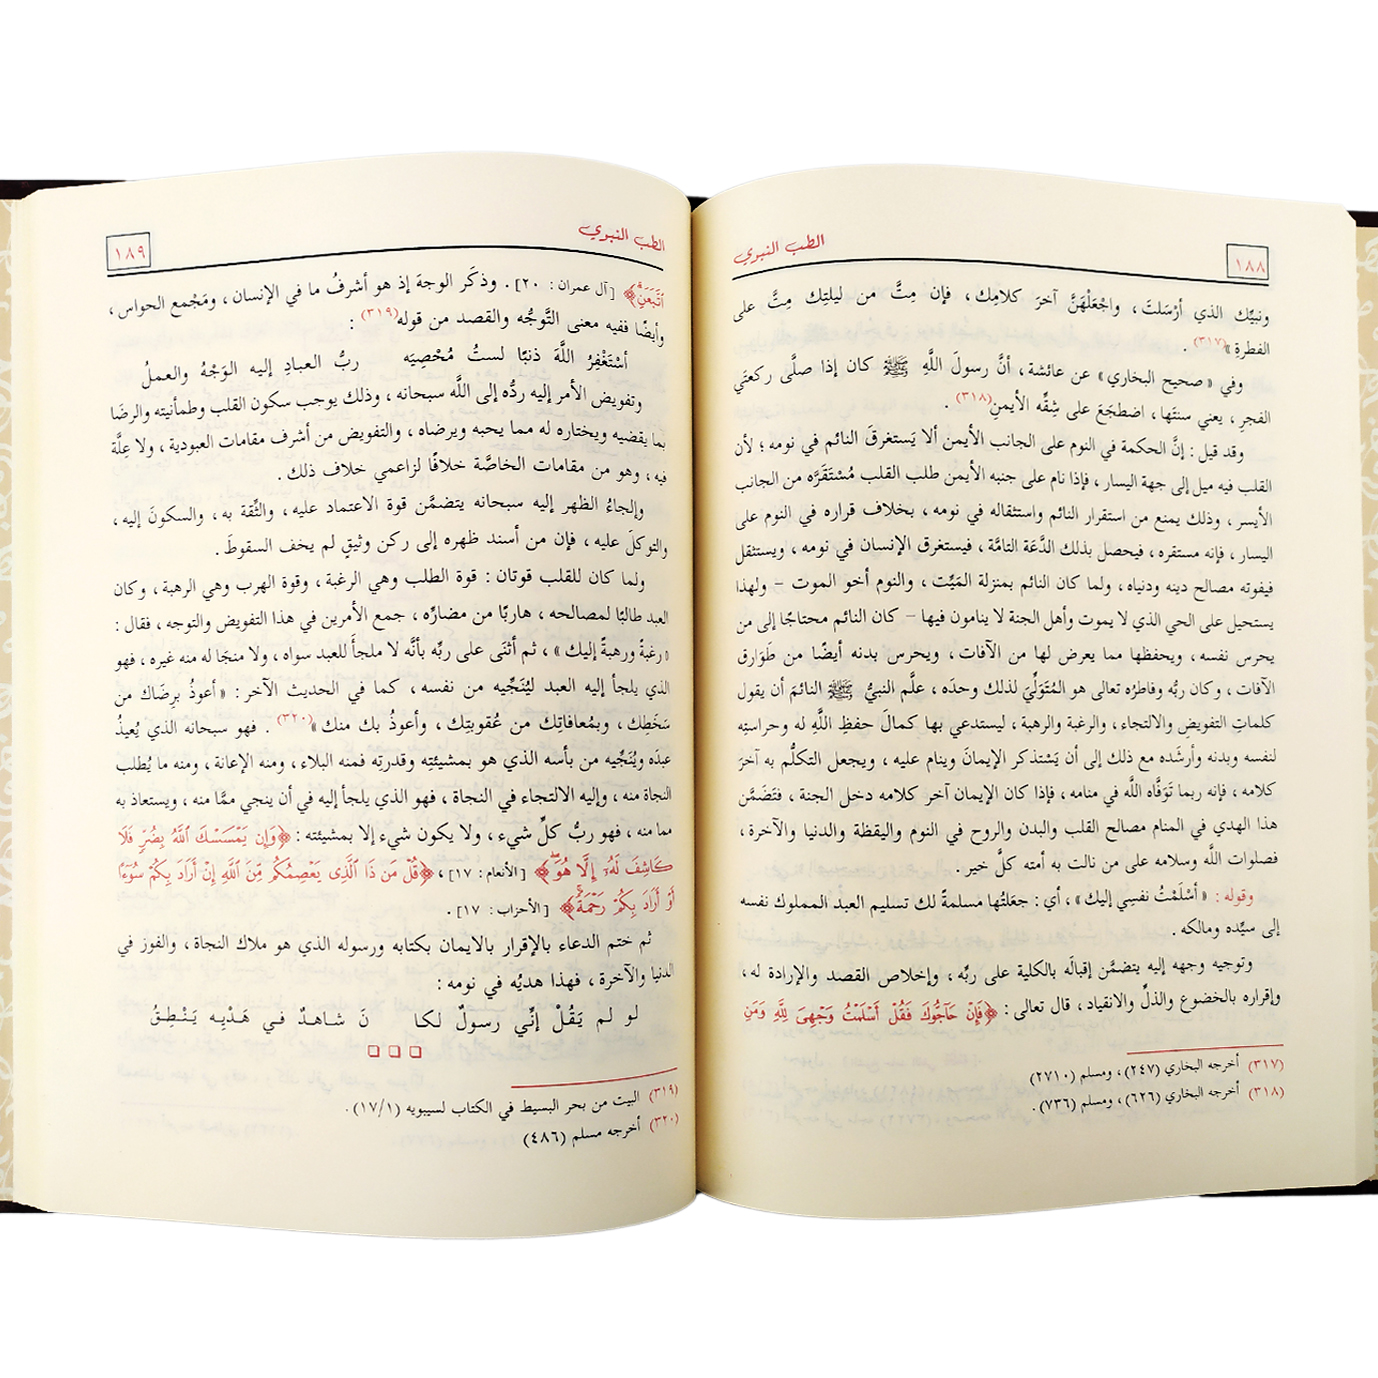 ١٨٨
الطب النبوي
ونبيِّك الذي أرْسَلتَ، واجْعَلْهُنَّ آخرَ كلامِك، فإن مِتَّ من ليلتِك مِتَّ على
الفطرةِ»(٣١٧).
وفي «صحيح البخاري» عن عائشة، أنَّ رسولَ اللَّهِ ﷺ كان إذا صلَّى ركعتَي
الفجرِ، يعني سنتَها، اضطَجَعَ على شِقِّه الأيمنِ(٣١٨).
وقد قيل: إنَّ الحكمة في النوم على الجانب الأيمن ألا يَستغرقَ النائم في نومه؛ لأن
القلب فيه ميل إلى جهة اليسار، فإذا نام على جنبه الأيمن طلب القلب مُسْتَقَرَّه من الجانب
الأيسر، وذلك يمنع من استقرار النائم واستثقاله في نومه، بخلاف قراره في النوم على
اليسار، فإنه مستقره، فيحصل بذلك الدَّعَة التامَّة، فيستغرق الإنسان في نومه، ويستثقل
فيفوته مصالح دينه ودنياه، ولما كان النائم بمنزلة المَيِّت، والنوم أخو الموت – ولهذا
يستحيل على الحي الذي لا يموت وأهل الجنة لا ينامون فيها – كان النائم محتاجًا إلى من
يحرس نفسه، ويحفظها مما يعرض لها من الآفات، ويحرس بدنه أيضًا من طَوَارق
الآفات، وكان ربُّه وفاطرُه تعالى هو المُتَوَلِّيَ لذلك وحدَه، علَّم النبيُّ ﷺ النائمَ أن يقول
كلماتِ التفويضِ والالتجاء، والرغبة والرهبة، ليستدعي بها كمالَ حفظِ اللَّهِ له وحراستِه
لنفسه وبدنه وأرشَده مع ذلك إلى أن يَسْتذكر الإيمانَ وينام عليه، ويجعل التكلُّم به آخرَ
كلامه، فإنه ربما تَوَفَّاه اللَّه في منامه، فإذا كان الإيمان آخر كلامه دخل الجنة، فتَضَمَّن
هذا الهدي في المنام مصالح القلب والبدن والروح في النوم واليقظة والدنيا والآخرة،
فصلوات اللَّه وسلامه على من نالت به أمته كلَّ خير.
وقوله: «أسْلَمْتُ نفسِي إليك»، أي: جعَلتُها مسلمةً لك تسليم العبد المملوك نفسه
إلى سيِّده ومالكه.
وتوجيه وجهه إليه يتضمَّن إقبالَه بالكلية على ربِّه، وإخلاص القصد والإرادة له،
وإقراره بالخضوع والذلِّ والانقياد، قال تعالى: ﴿فَإِنْ حَآجُّوكَ فَقُلْ أَسْلَمْتُ وَجْهِىَ لِلَّهِ وَمَنِ
(٣١٧) أخرجه البخاري (٢٤٧)، ومسلم (٢٧١٠)
(٣١٨) أخرجه البخاري (٦٢٦)، ومسلم (٧٣٦).
الطب النبوي
١٨٩
اتَّبَعَنِ﴾ [آل عمران: ٢٠]. وذكَر الوجهَ إذ هو أشرفُ ما في الإنسان، ومَجْمع الحواس،
وأيضًا ففيه معنى التَّوجُّه والقصد من قوله(٣١٩):
أسْتَغْفِرُ اللَّهَ ذنبًا لستُ مُحْصِيَه ربُّ العبادِ إليه الوَجْهُ والعملُ
وتفويض الأمر إليه ردُّه إلى اللَّه سبحانه، وذلك يوجب سكون القلب وطمأنيته والرضَا
بما يقضيه ويختاره له مما يحبه ويرضاه، والتفويض من أشرف مقامات العبودية، ولا عِلَّة
فيه، وهو من مقامات الخاصَّة خلافًا لزاعمي خلاف ذلك.
وإلجاءُ الظهر إليه سبحانه يتضمَّن قوة الاعتماد عليه، والثِّقة به، والسكونَ إليه،
والتوكلَ عليه، فإن من أسند ظهره إلى ركن وثيقٍ لم يخف السقوطَ.
ولما كان للقلب قوتان: قوة الطلب وهي الرغبة، وقوة الهرب وهي الرهبة، وكان
العبد طالبًا لمصالحه، هاربًا من مضارِّه، جمع الأمرين في هذا التفويض والتوجه، فقال:
«رغبةً ورهبةً إليك»، ثم أثنَى على ربِّه بأنَّه لا ملجأَ للعبد سواه، ولا منجَا له منه غيره، فهو
الذي يلجأ إليه العبد ليُنَجِّيه من نفسه، كما في الحديث الآخر: «أعوذُ برِضَاك من
سَخَطِك، وبمُعافاتِك من عُقوبتِك، وأعوذُ بك منك»(٣٢٠). فهو سبحانه الذي يُعيذُ
عبدَه ويُنَجِّيه من بأسه الذي هو بمشيئتِه وقدرتِه فمنه البلاء، ومنه الإعانة، ومنه ما يُطلب
النجاة منه، وإليه الالتجاء في النجاة، فهو الذي يلجأ إليه في أن ينجي ممَّا منه، ويستعاذ به
مما منه، فهو ربُّ كلِّ شيء، ولا يكون شيء إلا بمشيئته: ﴿وَإِن يَمْسَسْكَ ٱللَّهُ بِضُرٍّ فَلَا
كَاشِفَ لَهُۥٓ إِلَّا هُوَ﴾ [الأنعام: ١٧]، ﴿قُلْ مَن ذَا ٱلَّذِى يَعْصِمُكُم مِّنَ ٱللَّهِ إِنْ أَرَادَ بِكُمْ سُوٓءًا
أَوْ أَرَادَ بِكُمْ رَحْمَةً﴾ [الأحزاب: ١٧].
ثم ختم الدعاء بالإقرار بالايمان بكتابه ورسوله الذي هو ملاك النجاة، والفوز في
الدنيا والآخرة، فهذا هديُه في نومه:
لو لم يَقُلْ إنِّي رسولٌ لكا نَ شاهدٌ في هَدْيِه يَنْطِقُ
(٣١٩) البيت من بحر البسيط في الكتاب لسيبويه (١٧/١).
(٣٢٠) أخرجه مسلم (٤٨٦)